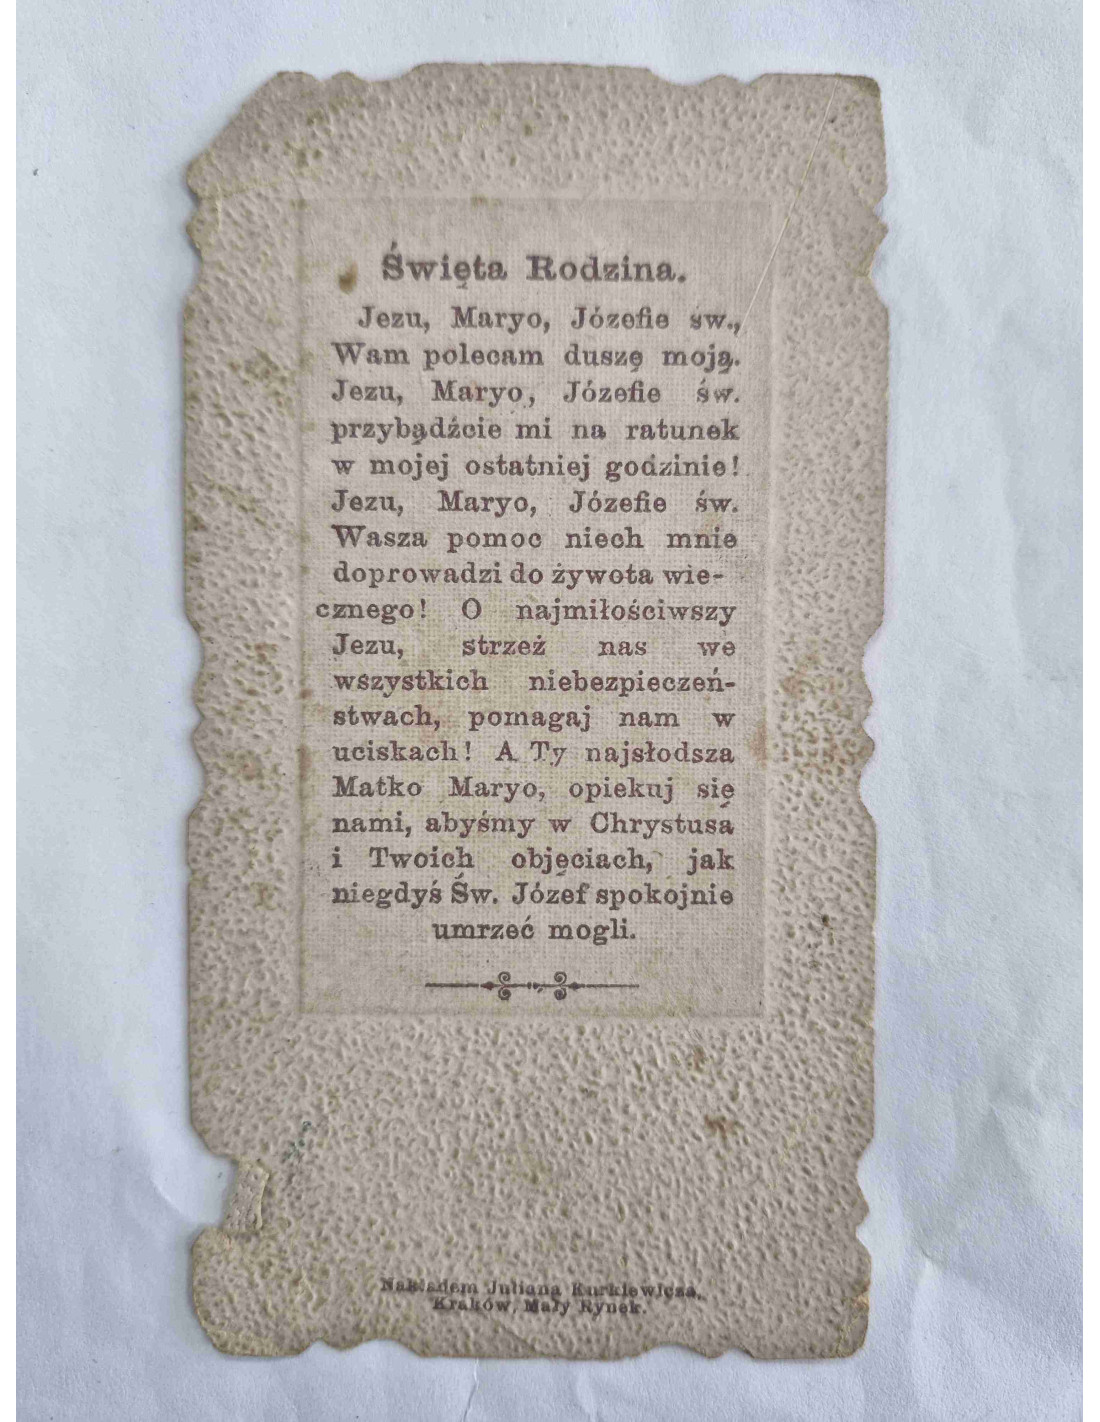 Święta Rodzina.
Jezu, Maryo, Józefie św.,
Wam polecam duszę moją.
Jezu, Maryo, Józefie św.
przybądźcie mi na ratunek
w mojej ostatniej godzinie!
Jezu, Maryo, Józefie św.
Wasza pomoc niech mnie
doprowadzi do żywota wie-
cznego! O najmiłościwszy
Jezu, strzeż nas we
wszystkich niebezpieczeń-
stwach, pomagaj nam w
uciskach! A Ty najsłodsza
Matko Maryo, opiekuj się
nami, abyśmy w Chrystusa
i Twoich objęciach, jak
niegdyś Św. Józef spokojnie
umrzeć mogli.
Nakładem Juliana Kurkiewicza,
Kraków, Mały Rynek.